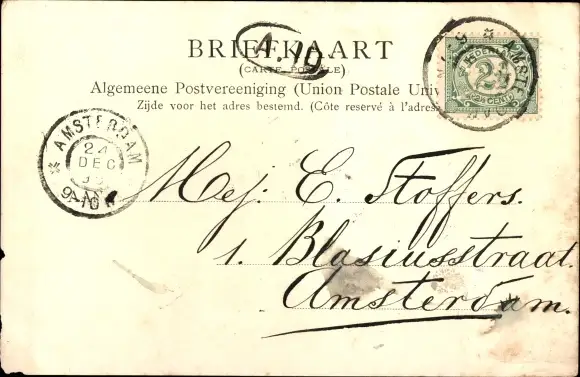 BRIEFKAART
A.10
(CARTE POSTALE)
Algemeene Postvereeniging (Union Postale Univ
Zijde voor het adres bestemd. (Côte reservé à l'adres
2½
CENT
AMSTERDAM
24
DEC
9-10
Mej. E. Stoffers.
1. Blasiusstraat.
Amsterdam.